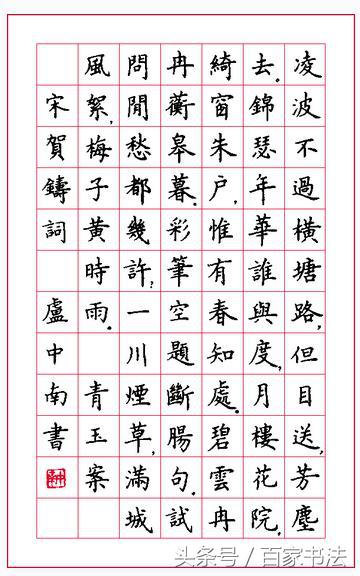 凌波不過橫塘路,但目送,芳塵
去.錦瑟年華誰與度,月樓花院,
綺窗朱戶,惟有春知處.碧雲冉
冉蘅皋暮.彩筆空題斷腸句.試
問閒愁都幾許,一川煙草,滿城
風絮,梅子黃時雨.青玉案
宋賀鑄詞 盧中南書
头条号 / 百家书法